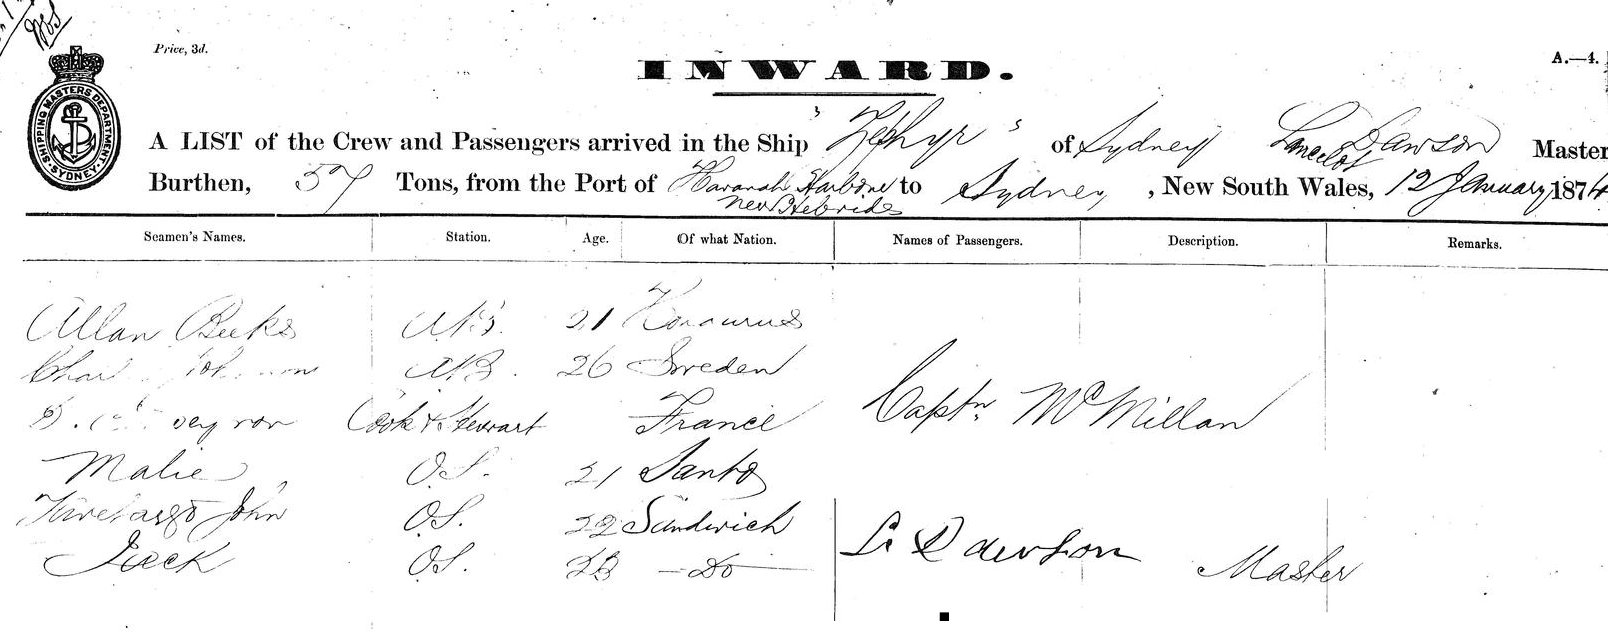 Price, 3d.
INWARD.
A.—4.
SHIPPING MASTERS DEPARTMENT SYDNEY
A LIST of the Crew and Passengers arrived in the Ship "Zephyr" of Sydney Lancelot Dawson Master
Burthen, 57 Tons, from the Port of Havanah Harbour New Hebrides to Sydney, New South Wales, 12 January 1874
Seamen's Names. Station. Age. Of what Nation. Names of Passengers. Description. Remarks.
Allan Beeks 21
26 Sweden
Cook & Stewart France
Captn McMillan
Malie O.S. 21 Santo
John O.S. 22 Sandwich
Jack O.S. Do
L. Dawson Master